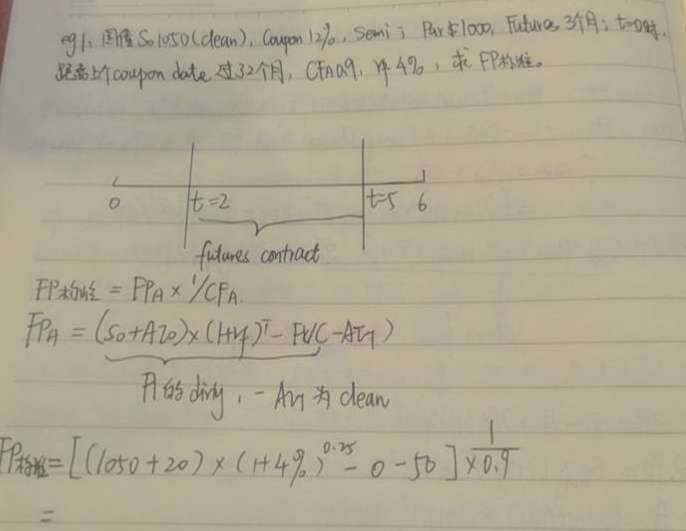 eg1. 国债 S0 1050 (clean), Coupon 12%, Semi; Par $1000, Futures 3个月; t=0时,
距离上个coupon date 过了2个月, CFA 0.9, rf 4%, 求 FP标准。
0 t=2 t=5 6
futures contract
FP标准 = FPA × 1/CFA.
FPA = (S0+AI0)×(1+rf)^T - FVC - AIT)
的 dirty, -AIT 为 clean
FP标准 = [(1050+20)×(1+4%)^0.25 - 0 - 50] × 1/0.9
=